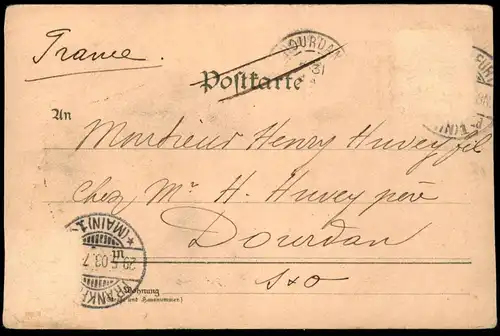 France.
DOURDAN
31
Postkarte
An
Monsieur Henry Huvey fils
Chez Mr H. Huvey père
Dourdan
S&O
FRANKF
29.5.03.7
*(MAIN)1.
Wohnung
(Straße und Hausnummer)